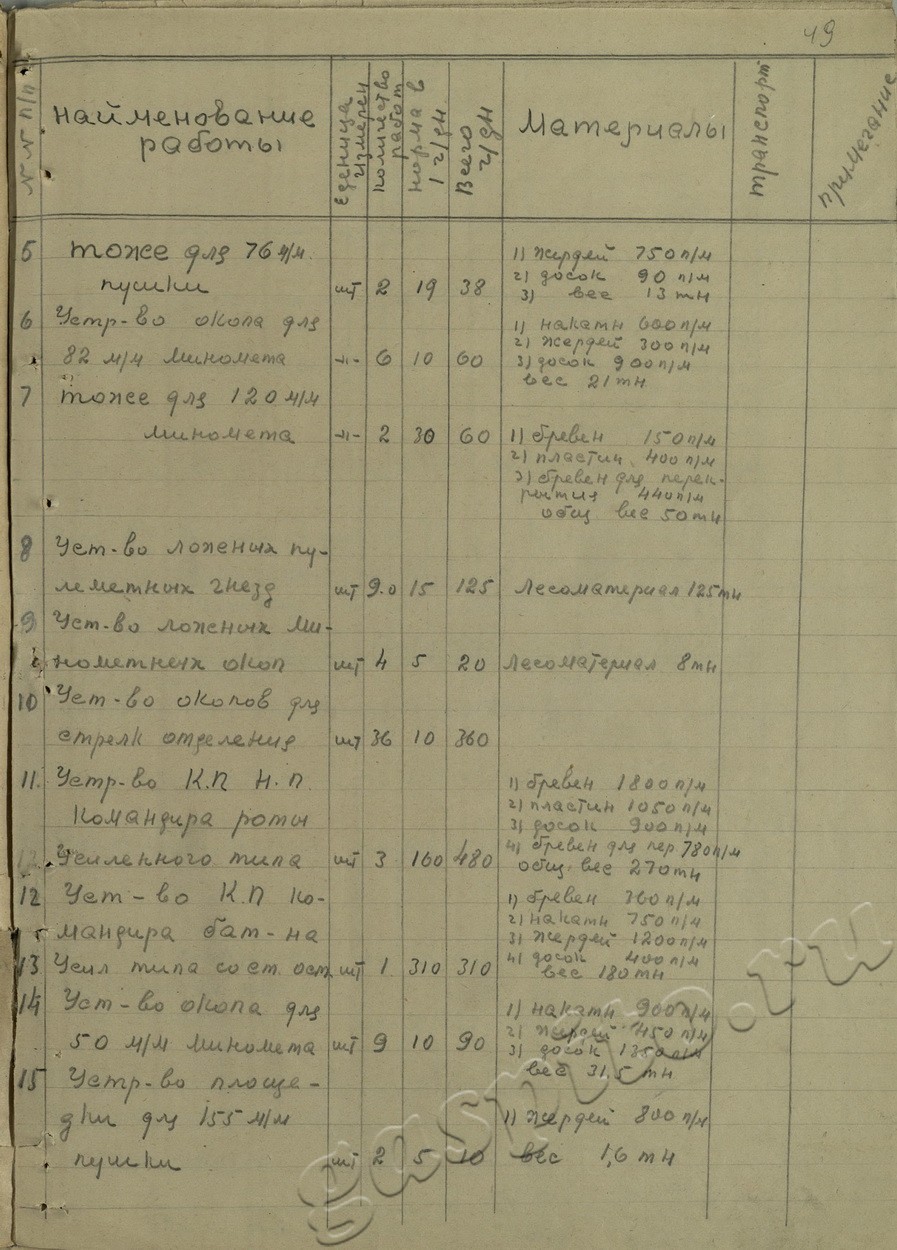 49
№ № п/п
найменование
работы
Еденица
измерен
количество
работ
норма в
1 ч/дн.
Всего
ч/дн
Материалы
транспорт
примечание
5 тоже для 76 м/м. 1) жердей 750 п/м
пушки шт 2 19 38 2) досок 90 п/м
3) вес 13 тн
6 Устр-во окопа для 1) накатн 600 п/м
82 м/м миномета -"- 6 10 60 2) жердей 300 п/м
3) досок 900 п/м
вес 21 тн
7 тоже для 120 м/м
миномета -"- 2 30 60 1) бревен 150 п/м
2) пластин 400 п/м
3) бревен для перек-
рытия 440 п/м
общ вес 50 тн
8 Уст-во ложеных пу-
леметных гнезд шт 9.0 15 125 Лесоматериал 125 тн
9 Уст-во ложеных ми-
нометных окоп шт 4 5 20 Лесоматериал 8 тн
10 Уст-во окопов для
стрелк отделения шт 36 10 360
11. Устр-во К.П Н.П. 1) бревен 1800 п/м
Командира роты 2) пластин 1050 п/м
3) досок 900 п/м
12 Усиленного типа шт 3 160 480 4) бревен для пер 780 п/м
общ. вес 270 тн
12 Уст-во К.П ко- 1) бревен 360 п/м
мандира бат-на 2) накатн 750 п/м
3) жердей 1200 п/м
13 Усил типа со ст. ост. шт 1 310 310 4) досок 400 п/м
вес 180 тн
14 Уст-во окопа для 1) накатн 900 п/м
50 м/м миномета шт 9 10 90 2) жердей 450 п/м
3) досок 1350 п/м
вес 31,5 тн
15 Устр-во площа-
дки для 155 м/м 1) жердей 800 п/м
пушки шт 2 5 10 вес 1,6 тн
gasmo.ru